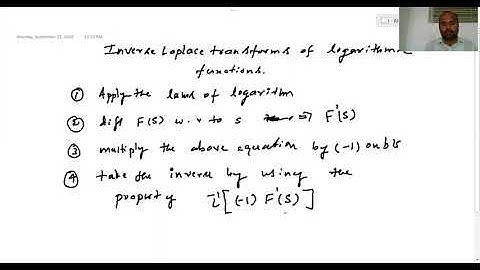 Monday, September 21, 2020 11:13 PM
Inverse Laplace transforms of logarithmic
functions.
① Apply the laws of logarithm
② diff F(S) w.r to s ⇒ F'(S)
③ multiply the above equation by (-1) on b/s
④ take the inverse by using the
property L⁻¹[(-1) F'(S)]